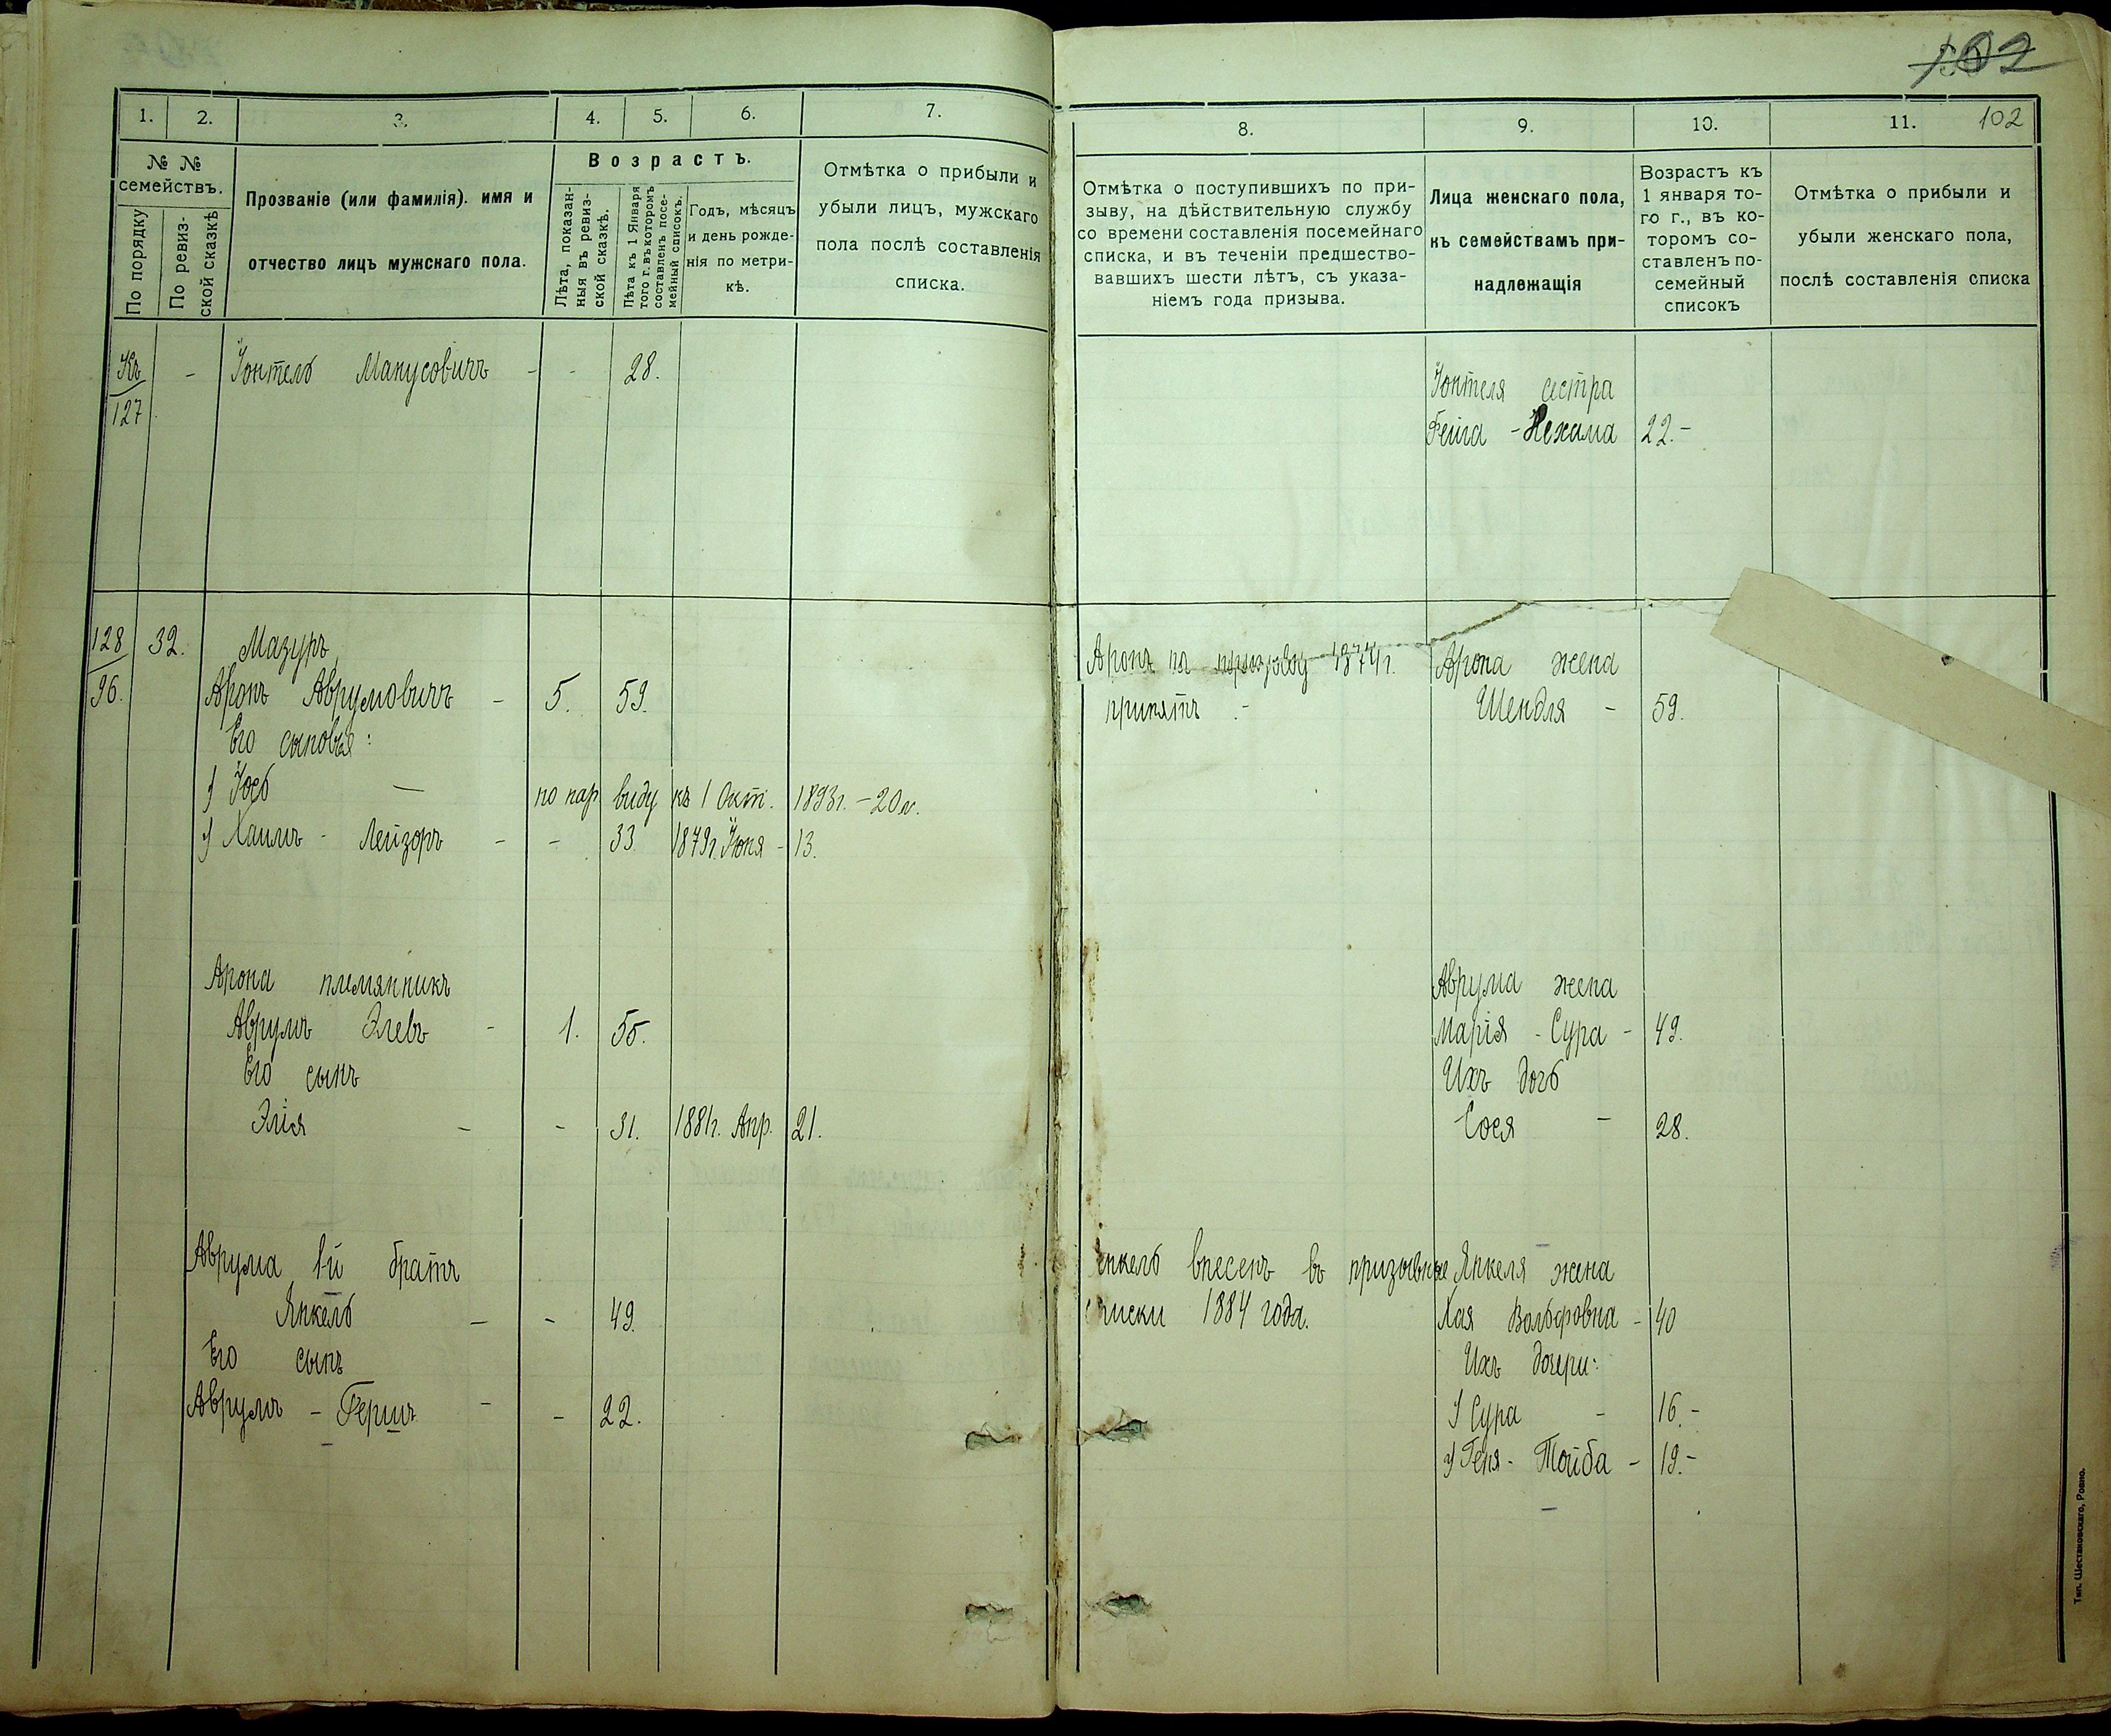 102
1. 2. 3. 4. 5. 6. 7.
№ № семействъ.
По порядку
По ревизской сказкѣ
Прозваніе (или фамилія). имя и
отчество лицъ мужскаго пола.
Возрастъ.
Лѣта, показан-
ныя въ ревиз-
ской сказкѣ.
Лѣта къ 1 Января
того г. въ которомъ
составленъ посе-
мейный списокъ.
Годъ, мѣсяцъ
и день рожде-
нія по метри-
кѣ.
Отмѣтка о прибыли и
убыли лицъ, мужскаго
пола послѣ составленія
списка.
Къ
127 - Іонтель Манусовичъ - - 28.
128 32. Мазуръ
96. Аронъ Аврумовичъ - 5. 59.
Его сыновья:
1) Іось — по нар. виду къ 1 Окт. 1893г. - 20 л.
2) Хаимъ - Лейзоръ - - 33 1879г. Іюня - 13.
Арона племянникъ
Аврумъ Элевъ - 1. 55.
Его сынъ
Элія - - 31. 1881г. Апр. 21.
Аврума 1-й братъ
Янкель — - 49.
Его сынъ
Аврумъ - Гершъ - - 22.
8. 9. 10. 11. 102
Отмѣтка о поступившихъ по при-
зыву, на дѣйствительную службу
со времени составленія посемейнаго
списка, и въ теченіи предшество-
вавшихъ шести лѣтъ, съ указа-
ніемъ года призыва.
Лица женскаго пола,
къ семействамъ при-
надлежащія
Возрастъ къ
1 января то-
го г., въ ко-
торомъ со-
ставленъ по-
семейный
списокъ
Отмѣтка о прибыли и
убыли женскаго пола,
послѣ составленія списка
Іонтеля сестра
Фейга - Нехама 22.-
Аронъ по призыву 1874г. Арона жена
принятъ. - Шендля - 59.
Аврума жена
Марія - Сура - 49.
Ихъ дочь
Сося - 28.
Янкель внесенъ въ призывные Янкеля жена
списки 1884 года. Хая Вольфовна - 40
Ихъ дочери:
1) Сура - 16.-
2) Геня - Тойба - 19.-
Тип. Шестаковскаго, Ровно.